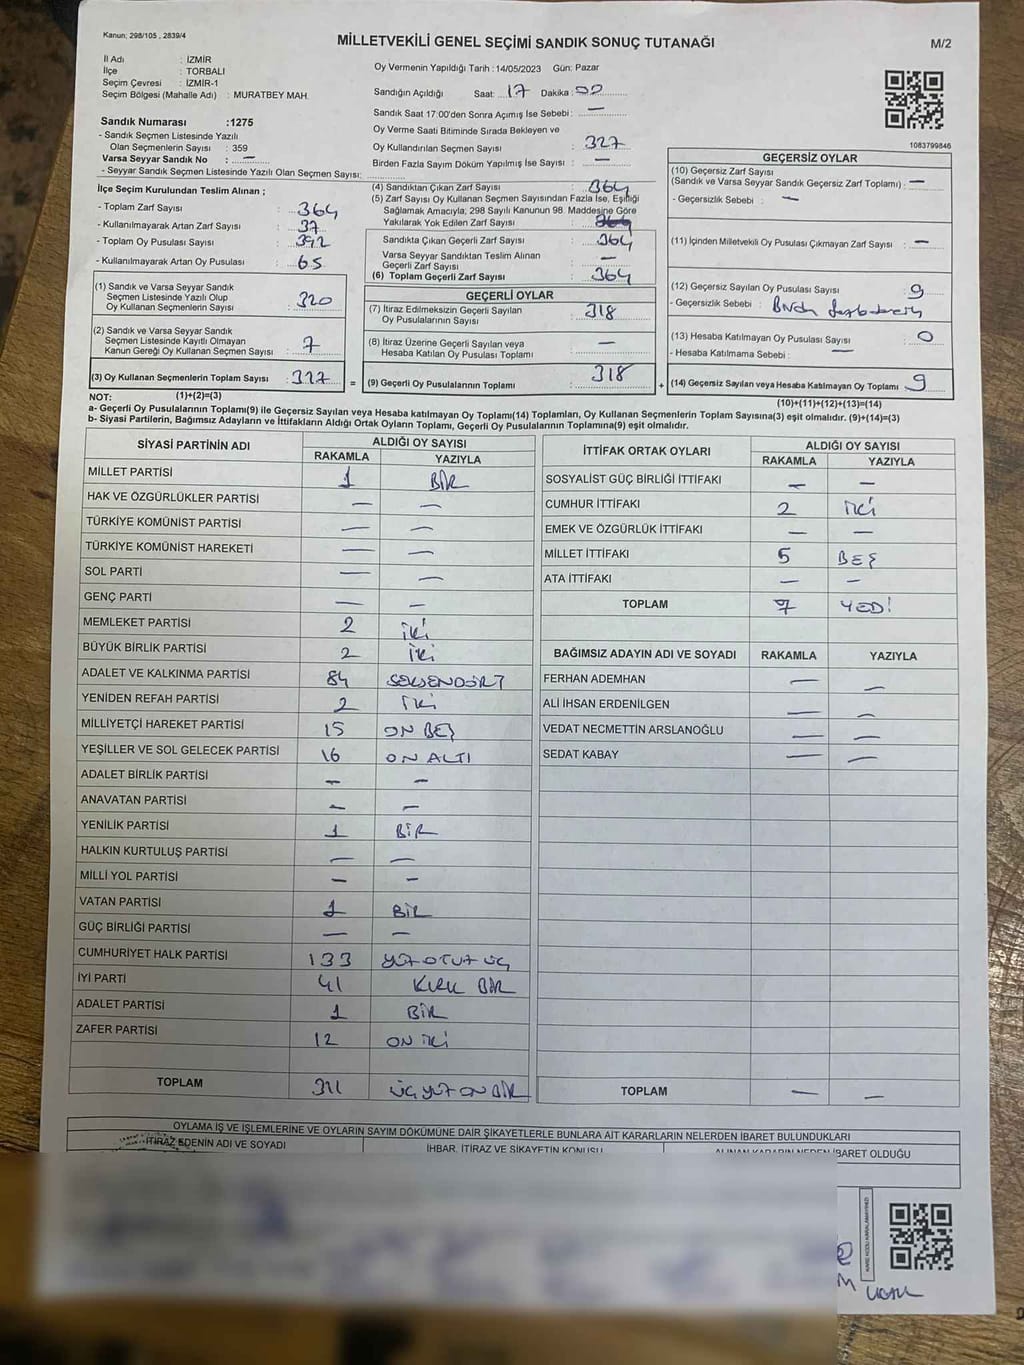 Kanun; 298/105 , 2839/4
MİLLETVEKİLİ GENEL SEÇİMİ SANDIK SONUÇ TUTANAĞI
M/2
İl Adı : İZMİR
İlçe : TORBALI
Seçim Çevresi : İZMİR-1
Seçim Bölgesi (Mahalle Adı) : MURATBEY MAH.
Sandık Numarası :1275
- Sandık Seçmen Listesinde Yazılı
Olan Seçmenlerin Sayısı : 359
Varsa Seyyar Sandık No : —
- Seyyar Sandık Seçmen Listesinde Yazılı Olan Seçmen Sayısı:
Oy Vermenin Yapıldığı Tarih : 14/05/2023 Gün: Pazar
Sandığın Açıldığı Saat: 17 Dakika: 00
Sandık Saat 17:00'den Sonra Açımış İse Sebebi : —
Oy Verme Saati Bitiminde Sırada Bekleyen ve
Oy Kullandırılan Seçmen Sayısı : 327
Birden Fazla Sayım Döküm Yapılmış İse Sayısı : —
1083799846
İlçe Seçim Kurulundan Teslim Alınan ;
- Toplam Zarf Sayısı : 364
- Kullanılmayarak Artan Zarf Sayısı : 37
- Toplam Oy Pusulası Sayısı : 392
- Kullanılmayarak Artan Oy Pusulası : 65
(1) Sandık ve Varsa Seyyar Sandık
Seçmen Listesinde Yazılı Olup
Oy Kullanan Seçmenlerin Sayısı : 320
(2) Sandık ve Varsa Seyyar Sandık
Seçmen Listesinde Kayıtlı Olmayan
Kanun Gereği Oy Kullanan Seçmen Sayısı : 7
(3) Oy Kullanan Seçmenlerin Toplam Sayısı : 327
(1)+(2)=(3)
(4) Sandıktan Çıkan Zarf Sayısı : 364
(5) Zarf Sayısı Oy Kullanan Seçmen Sayısından Fazla İse, Eşitliği
Sağlamak Amacıyla; 298 Sayılı Kanunun 98. Maddesine Göre
Yakılarak Yok Edilen Zarf Sayısı :
Sandıkta Çıkan Geçerli Zarf Sayısı : 364
Varsa Seyyar Sandıktan Teslim Alınan
Geçerli Zarf Sayısı : —
(6) Toplam Geçerli Zarf Sayısı : 364
GEÇERLİ OYLAR
(7) İtiraz Edilmeksizin Geçerli Sayılan
Oy Pusulalarının Sayısı : 318
(8) İtiraz Üzerine Geçerli Sayılan veya
Hesaba Katılan Oy Pusulası Toplamı : —
= (9) Geçerli Oy Pusulalarının Toplamı : 318 +
GEÇERSİZ OYLAR
(10) Geçersiz Zarf Sayısı
(Sandık ve Varsa Seyyar Sandık Geçersiz Zarf Toplamı) : —
- Geçersizlik Sebebi : —
(11) İçinden Milletvekili Oy Pusulası Çıkmayan Zarf Sayısı : —
(12) Geçersiz Sayılan Oy Pusulası Sayısı : 9
- Geçersizlik Sebebi :
(13) Hesaba Katılmayan Oy Pusulası Sayısı : 0
- Hesaba Katılmama Sebebi : —
(14) Geçersiz Sayılan veya Hesaba Katılmayan Oy Toplamı : 9
(10)+(11)+(12)+(13)=(14)
NOT:
a- Geçerli Oy Pusulalarının Toplamı(9) ile Geçersiz Sayılan veya Hesaba katılmayan Oy Toplamı(14) Toplamları, Oy Kullanan Seçmenlerin Toplam Sayısına(3) eşit olmalıdır. (9)+(14)=(3)
b- Siyasi Partilerin, Bağımsız Adayların ve İttifakların Aldığı Ortak Oyların Toplamı, Geçerli Oy Pusulalarının Toplamına(9) eşit olmalıdır.
SİYASİ PARTİNİN ADI ALDIĞI OY SAYISI
RAKAMLA YAZIYLA
MİLLET PARTİSİ 1 BİR
HAK VE ÖZGÜRLÜKLER PARTİSİ — —
TÜRKİYE KOMÜNİST PARTİSİ — —
TÜRKİYE KOMÜNİST HAREKETİ — —
SOL PARTİ — —
GENÇ PARTİ — —
MEMLEKET PARTİSİ 2 İKİ
BÜYÜK BİRLİK PARTİSİ 2 İKİ
ADALET VE KALKINMA PARTİSİ 84 SEKSENDÖRT
YENİDEN REFAH PARTİSİ 2 İKİ
MİLLİYETÇİ HAREKET PARTİSİ 15 ON BEŞ
YEŞİLLER VE SOL GELECEK PARTİSİ 16 ON ALTI
ADALET BİRLİK PARTİSİ — —
ANAVATAN PARTİSİ — —
YENİLİK PARTİSİ 1 BİR
HALKIN KURTULUŞ PARTİSİ — —
MİLLİ YOL PARTİSİ — —
VATAN PARTİSİ 1 BİR
GÜÇ BİRLİĞİ PARTİSİ — —
CUMHURİYET HALK PARTİSİ 133 YÜZ OTUZ ÜÇ
İYİ PARTİ 41 KIRK BİR
ADALET PARTİSİ 1 BİR
ZAFER PARTİSİ 12 ON İKİ
TOPLAM 311 ÜÇ YÜZ ON BİR
İTTİFAK ORTAK OYLARI ALDIĞI OY SAYISI
RAKAMLA YAZIYLA
SOSYALİST GÜÇ BİRLİĞİ İTTİFAKI — —
CUMHUR İTTİFAKI 2 İKİ
EMEK VE ÖZGÜRLÜK İTTİFAKI — —
MİLLET İTTİFAKI 5 BEŞ
ATA İTTİFAKI — —
TOPLAM 7 YEDİ
BAĞIMSIZ ADAYIN ADI VE SOYADI RAKAMLA YAZIYLA
FERHAN ADEMHAN — —
ALİ İHSAN ERDENİLGEN — —
VEDAT NECMETTİN ARSLANOĞLU — —
SEDAT KABAY — —
TOPLAM — —
OYLAMA İŞ VE İŞLEMLERİNE VE OYLARIN SAYIM DÖKÜMÜNE DAİR ŞİKAYETLERLE BUNLARA AİT KARARLARIN NELERDEN İBARET BULUNDUKLARI
İTİRAZ EDENİN ADI VE SOYADI
İHBAR, İTİRAZ VE ŞİKAYETİN KONUSU
ALINAN KARARIN NEDEN İBARET OLDUĞU